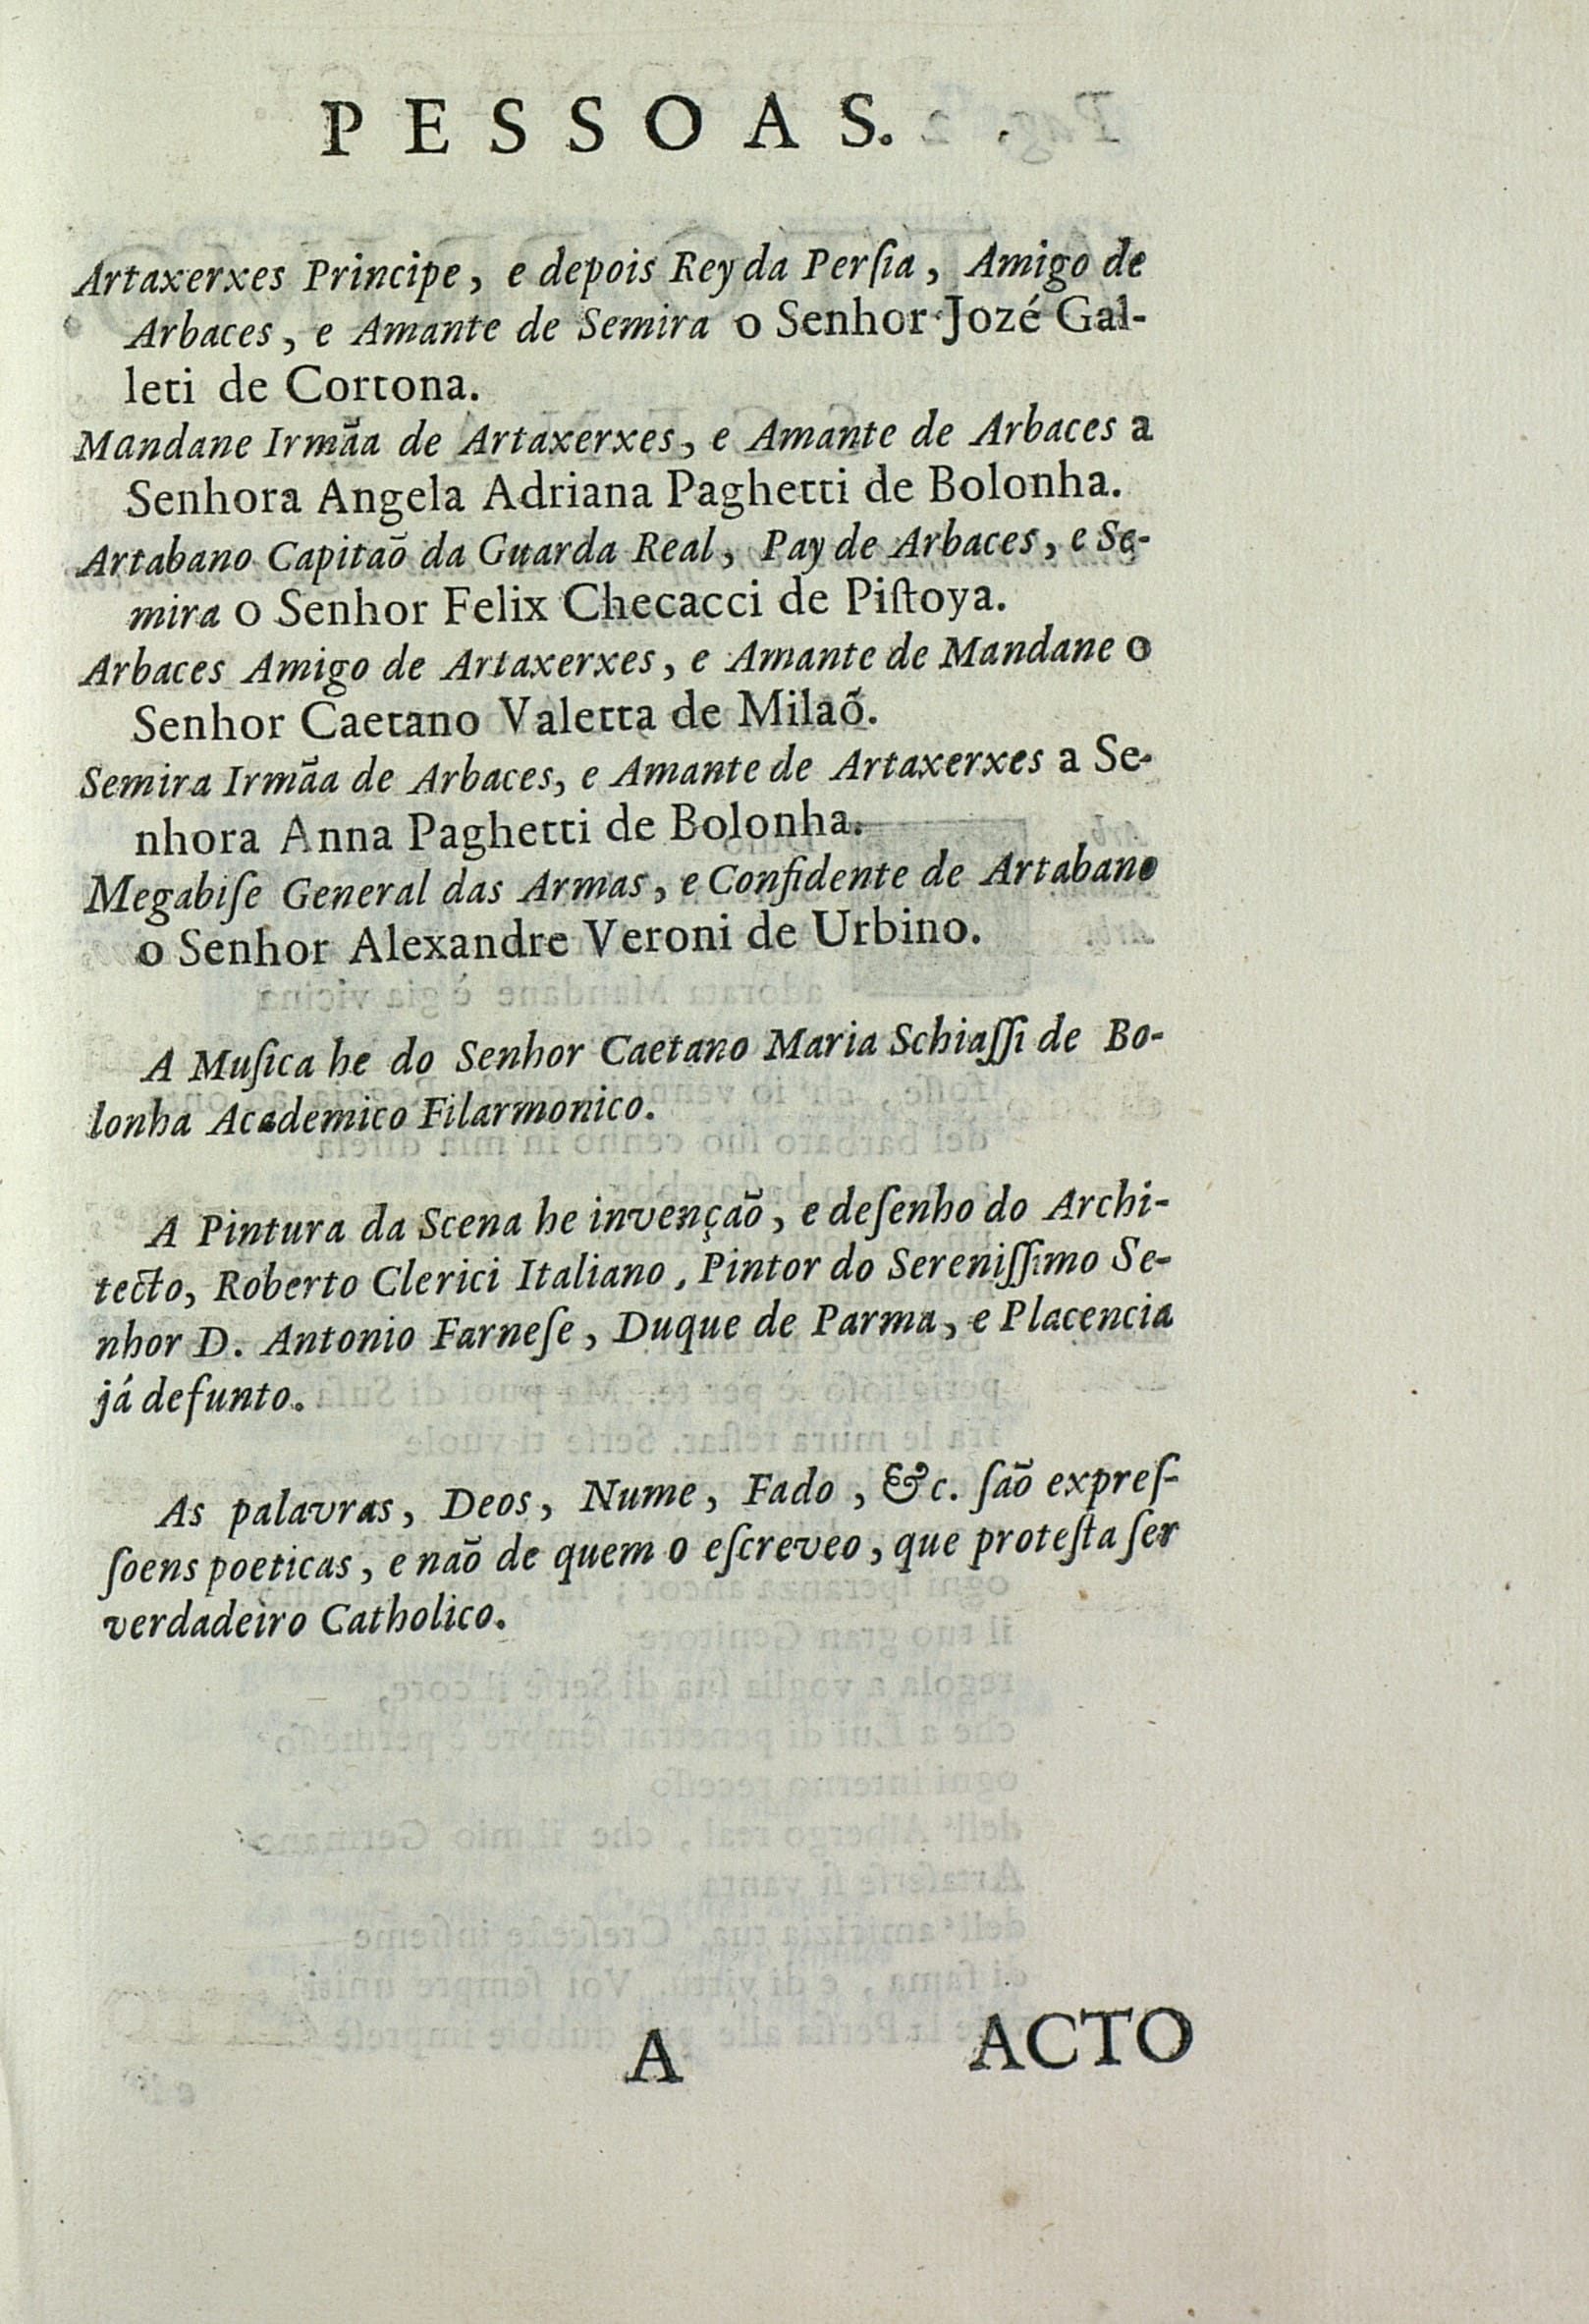 PESSOAS.
Artaxerxes Principe, e depois Rey da Perſia, Amigo de
Arbaces, e Amante de Semira o Senhor Jozé Gal-
leti de Cortona.
Mandane Irmãa de Artaxerxes, e Amante de Arbaces a
Senhora Angela Adriana Paghetti de Bolonha.
Artabano Capitaõ da Guarda Real, Pay de Arbaces, e Se-
mira o Senhor Felix Checacci de Piſtoya.
Arbaces Amigo de Artaxerxes, e Amante de Mandane o
Senhor Caetano Valetta de Milaõ.
Semira Irmãa de Arbaces, e Amante de Artaxerxes a Se-
nhora Anna Paghetti de Bolonha.
Megabiſe General das Armas, e Confidente de Artabano
o Senhor Alexandre Veroni de Urbino.
A Muſica he do Senhor Caetano Maria Schiaſſi de Bo-
lonha Academico Filarmonico.
A Pintura da Scena he invençaõ, e deſenho do Archi-
tecto, Roberto Clerici Italiano, Pintor do Sereniſſimo Se-
nhor D. Antonio Farneſe, Duque de Parma, e Placencia
já defunto.
As palavras, Deos, Nume, Fado, &c. ſaõ expreſ-
ſoens poeticas, e naõ de quem o eſcreveo, que proteſta ſer
verdadeiro Catholico.
A ACTO